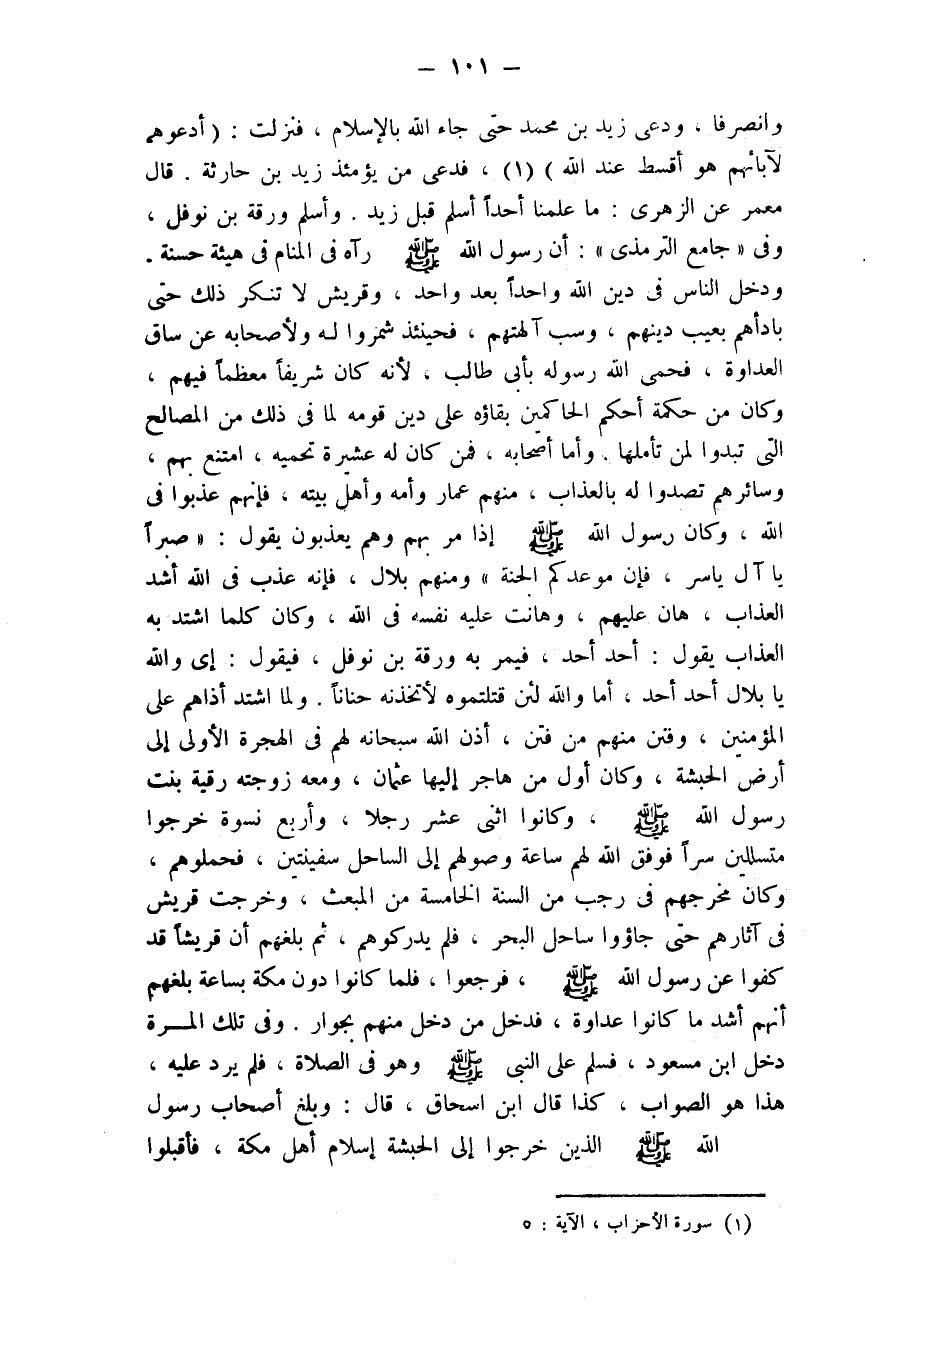 – ١٠١ –
وانصرفا ، ودعى زيد بن محمد حتى جاء الله بالإسلام ، فنزلت : ( أدعوهم
لآبائهم هو أقسط عند الله ) (١) ، فدعى من يؤمئذ زيد بن حارثة . قال
معمر عن الزهرى : ما علمنا أحداً أسلم قبل زيد . وأسلم ورقة بن نوفل ،
وفى « جامع الترمذى » : أن رسول الله ﷺ رآه فى المنام فى هيئة حسنة .
ودخل الناس فى دين الله واحداً بعد واحد ، وقريش لا تنكر ذلك حتى
بادأهم بعيب دينهم ، وسب آلهتهم ، فحينئذ شمزوا له ولأصحابه عن ساق
العداوة ، فحمى الله رسوله بأبى طالب ، لأنه كان شريفاً معظماً فيهم ،
وكان من حكمة أحكم الحاكمين بقاؤه على دين قومه لما فى ذلك من المصالح
التى تبدوا لمن تأملها . وأما أصحابه ، فمن كان له عشيرة تحميه ، امتنع بهم ،
وسائرهم تصدوا له بالعذاب ، منهم عمار وأمه وأهل بيته ، فإنهم عذبوا فى
الله ، وكان رسول الله ﷺ إذا مر بهم وهم يعذبون يقول : « صبراً
يا آل ياسر ، فإن موعدكم الجنة » ومنهم بلال ، فإنه عذب فى الله أشد
العذاب ، هان عليهم ، وهانت عليه نفسه فى الله ، وكان كلما اشتد به
العذاب يقول : أحد أحد ، فيمر به ورقة بن نوفل ، فيقول : إى والله
يا بلال أحد أحد ، أما والله لئن قتلتموه لأتخذنه حناناً . ولما اشتد أذاهم على
المؤمنين ، وفتن منهم من فتن ، أذن الله سبحانه لهم فى الهجرة الأولى إلى
أرض الحبشة ، وكان أول من هاجر إليها عثمان ، ومعه زوجته رقية بنت
رسول الله ﷺ ، وكانوا اثنى عشر رجلا ، وأربع نسوة خرجوا
متسللين سراً فوفق الله لهم ساعة وصولهم إلى الساحل سفينتين ، فحملوهم ،
وكان مخرجهم فى رجب من السنة الخامسة من المبعث ، وخرجت قريش
فى آثارهم حتى جاؤوا ساحل البحر ، فلم يدركوهم ، ثم بلغهم أن قريشاً قد
كفوا عن رسول الله ﷺ ، فرجعوا ، فلما كانوا دون مكة بساعة بلغهم
أنهم أشد ما كانوا عداوة ، فدخل من دخل منهم بجوار . وفى تلك المـــرة
دخل ابن مسعود ، فسلم على النبى ﷺ وهو فى الصلاة ، فلم يرد عليه ،
هذا هو الصواب ، كذا قال ابن اسحاق ، قال : وبلغ أصحاب رسول
الله ﷺ الذين خرجوا إلى الحبشة إسلام أهل مكة ، فأقبلوا
(١) سورة الأحزاب ، الآية : ٥